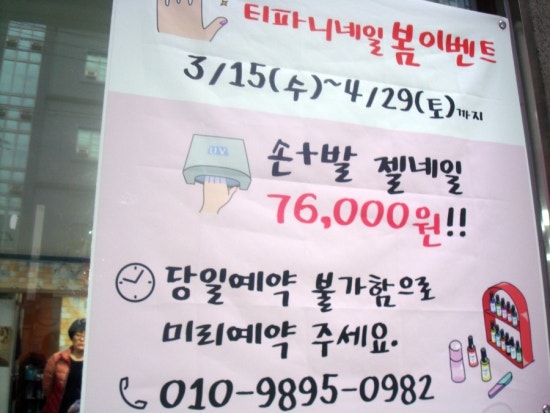 티파니네일 봄이벤트
3/15(수)~4/29(토)까지
UV
손+발 젤네일
76,000원!!
당일예약 불가함으로
미리예약 주세요.
010-9895-0982